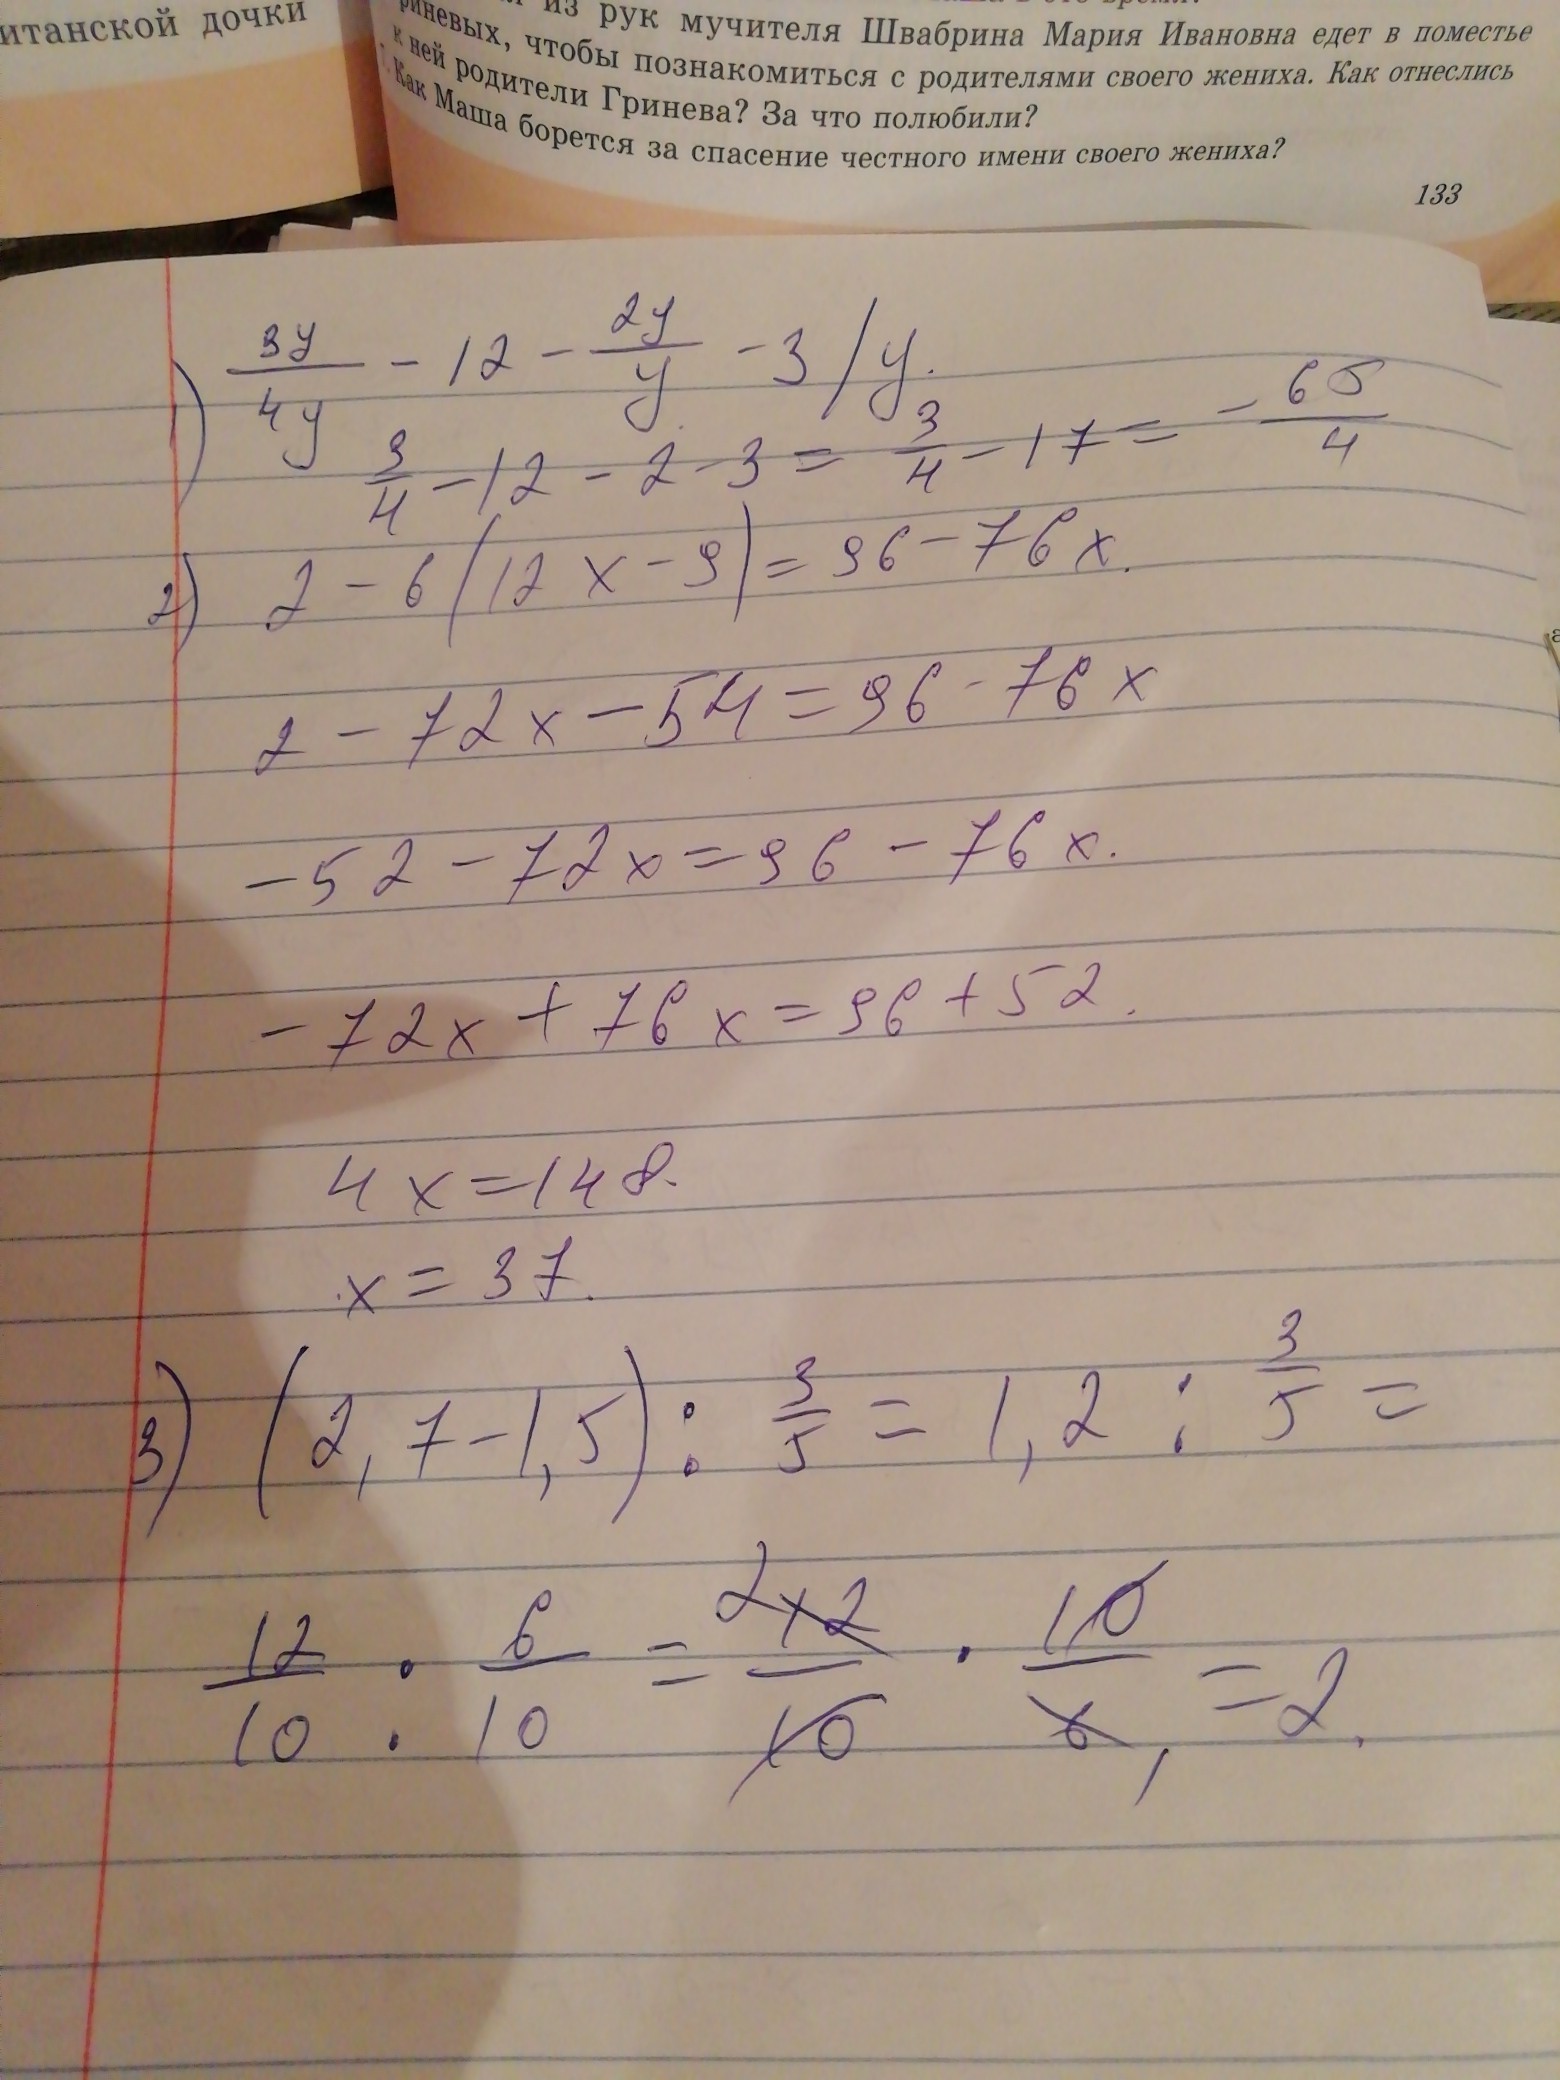 итанской дочки
из рук мучителя Швабрина Мария Ивановна едет в поместье
риневых, чтобы познакомиться с родителями своего жениха. Как отнеслись
к ней родители Гринева? За что полюбили?
Как Маша борется за спасение честного имени своего жениха?
133
1) 3y/4y - 12 - 2y/y - 3 / y.
3/4 - 12 - 2 - 3 = 3/4 - 17 = - 65/4
2) 2 - 6(12x - 9) = 96 - 76x.
2 - 72x - 54 = 96 - 76x
-52 - 72x = 96 - 76x.
-72x + 76x = 96 + 52.
4x = 148.
x = 37.
3) (2,7 - 1,5) : 3/5 = 1,2 : 3/5 =
12/10 · 6/10 = 12/10 · 10/6 = 2.